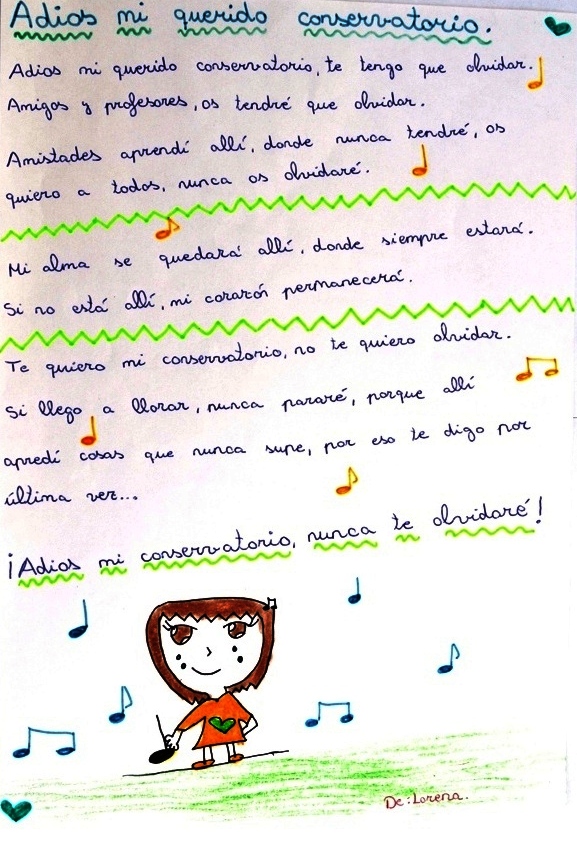 Adios mi querido conservatorio.
Adios mi querido conservatorio, te tengo que olvidar.
Amigos y profesores, os tendré que olvidar.
Amistades aprendí allí, donde nunca tendré, os
quiero a todos, nunca os olvidaré.
Mi alma se quedará allí, donde siempre estará.
Si no está allí, mi corazón permanecerá.
Te quiero mi conservatorio, no te quiero olvidar.
Si llego a llorar, nunca pararé, porque allí
apredí cosas que nunca supe, por eso te digo por
última vez...
¡Adios mi conservatorio, nunca te olvidaré!
De: Lorena.